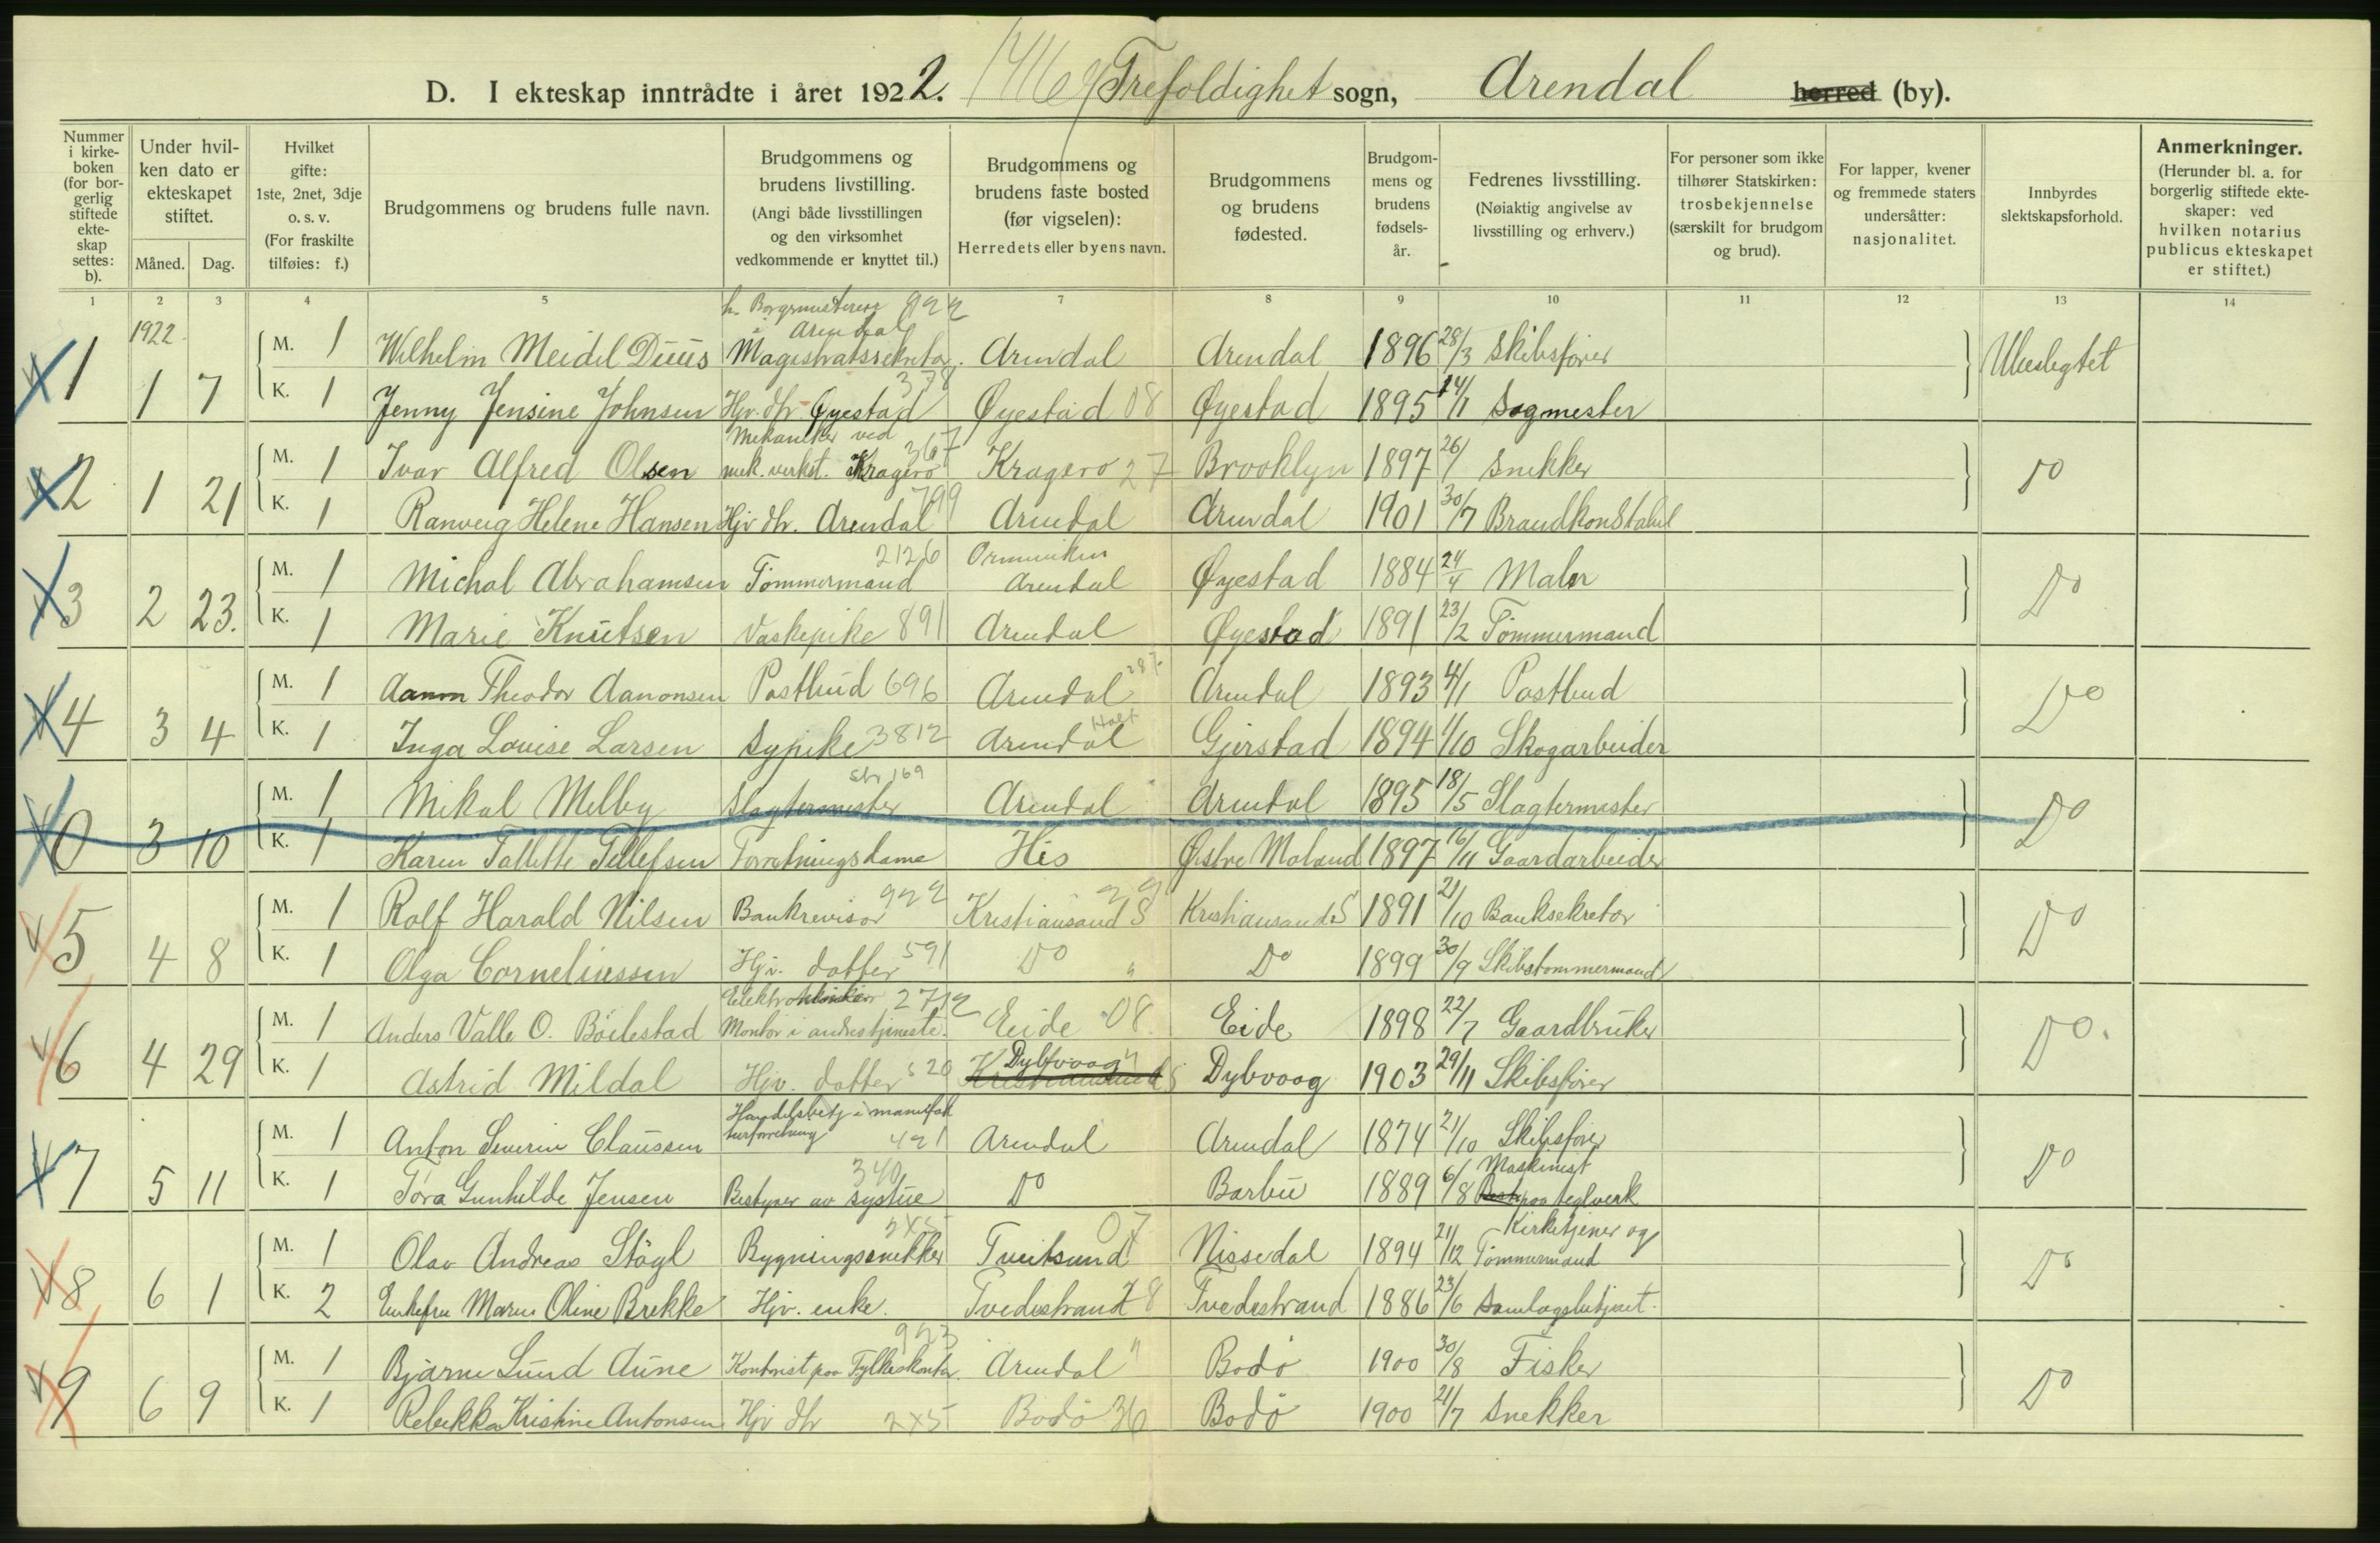 D. I ekteskap inntrådte i året 1922. Trefoldighet sogn, Arendal herred (by).
Nummer i kirke-boken (for bor-gerlig stiftede ekte-skap settes: b).
Under hvil-ken dato er ekteskapet stiftet.
Måned. Dag.
Hvilket gifte: 1ste, 2net, 3dje o. s. v. (For fraskilte tilføies: f.)
Brudgommens og brudens fulle navn.
Brudgommens og brudens livstilling. (Angi både livsstillingen og den virksomhet vedkommende er knyttet til.)
Brudgommens og brudens faste bosted (før vigselen): Herredets eller byens navn.
Brudgommens og brudens fødested.
Brudgom-mens og brudens fødsels-år.
Fedrenes livsstilling. (Nøiaktig angivelse av livsstilling og erhverv.)
For personer som ikke tilhører Statskirken: trosbekjennelse (særskilt for brudgom og brud).
For lapper, kvener og fremmede staters undersåtter: nasjonalitet.
Innbyrdes slektskapsforhold.
Anmerkninger. (Herunder bl. a. for borgerlig stiftede ekte-skaper: ved hvilken notarius publicus ekteskapet er stiftet.)
1 2 3 4 5 7 8 9 10 11 12 13 14
h. Borgermesteren 922
1922. i Arendal
1 M. 1 Wilhelm Meidel Duus Magistratssekretær. Arendal Arendal 1896 28/3 Skibsfører Ubeslegtet
1 7 K. 1 Jenny Jensine Johnsen Hjv. dtr. Øyestad 378 Øyestad 08 Øyestad 1895 14/1 Sagmester
Mekaniker ved 367
2 M. 1 Ivar Alfred Olsen mek. verkst. Kragerø Kragerø 27 Brooklyn 1897 26/1 Snekker Do
1 21 K. 1 Ranveig Helene Hansen Hjv dtr. Arendal 799 Arendal Arendal 1901 30/7 Brandkonstabel
2126
3 M. 1 Michal Abrahamsen Tømmermand Arendal Øyestad 1884 24/4 Maler Do
2 23. K. 1 Marie Knutsen Vaskepike 891 Arendal Øyestad 1891 23/2 Tømmermand
287
4 M. 1 Aanon Theodor Aanonsen Postbud 696 Arendal Arendal 1893 4/1 Postbud Do
Holt
3 4 K. 1 Inga Lovise Larsen Sypike 3812 Arendal Gjerstad 1894 1/10 Skogarbeider
str 169
0 M. 1 Mikal Melby Slagtermester Arendal Arendal 1895 18/5 Slagtermester Do
3 10 K. 1 Karen Tallette Tellefsen Forretningsdame His Østre Moland 1897 16/11 Gaardarbeider
922 29
5 M. 1 Rolf Harald Nilsen Bankrevisor Kristiansand S Kristiansand S 1891 21/10 Banksekretær Do
4 8 K. 1 Olga Corneliussen Hjv. datter 591 Do " Do 1899 30/9 Skibstømmermand
2712
6 M. 1 Anders Valle O. Böilestad Montør i andres tjeneste. Eide 08 Eide 1898 22/7 Gaardbruker Do.
Dybvaag "
4 29 K. 1 Astrid Mildal Hjv. datter 520 Kristiansand S Dybvaag 1903 29/11 Skibsfører
Handelsbetj i manufak
turforretning 421
7 M. 1 Anton Severin Claussen Arendal Arendal 1874 21/10 Skibsfører Do
340 Maskinist
5 11 K. 1 Tora Gunhilde Jensen Bestyrer av systue Do Barbu 1889 6/8 paa teglverk
2x5 07 Kirketjener og
8 M. 1 Olav Andreas Stögl Bygningssnekker Tveitsund Nissedal 1894 21/12 Tømmermand Do
6 1 K. 2 Enkefru Maren Oline Brekke Hjv. enke. Tvedestrand 8 Tvedestrand 1886 23/6 Samlagsbetjent.
923
9 M. 1 Bjarne Lund Aune Kontorist paa Fylkeskontor. Arendal " Bodø 1900 30/8 Fisker Do
6 9 K. 1 Rebekka Kristine Antonsen Hjv dtr 2x5 Bodø 36 Bodø 1900 21/7 Snekker